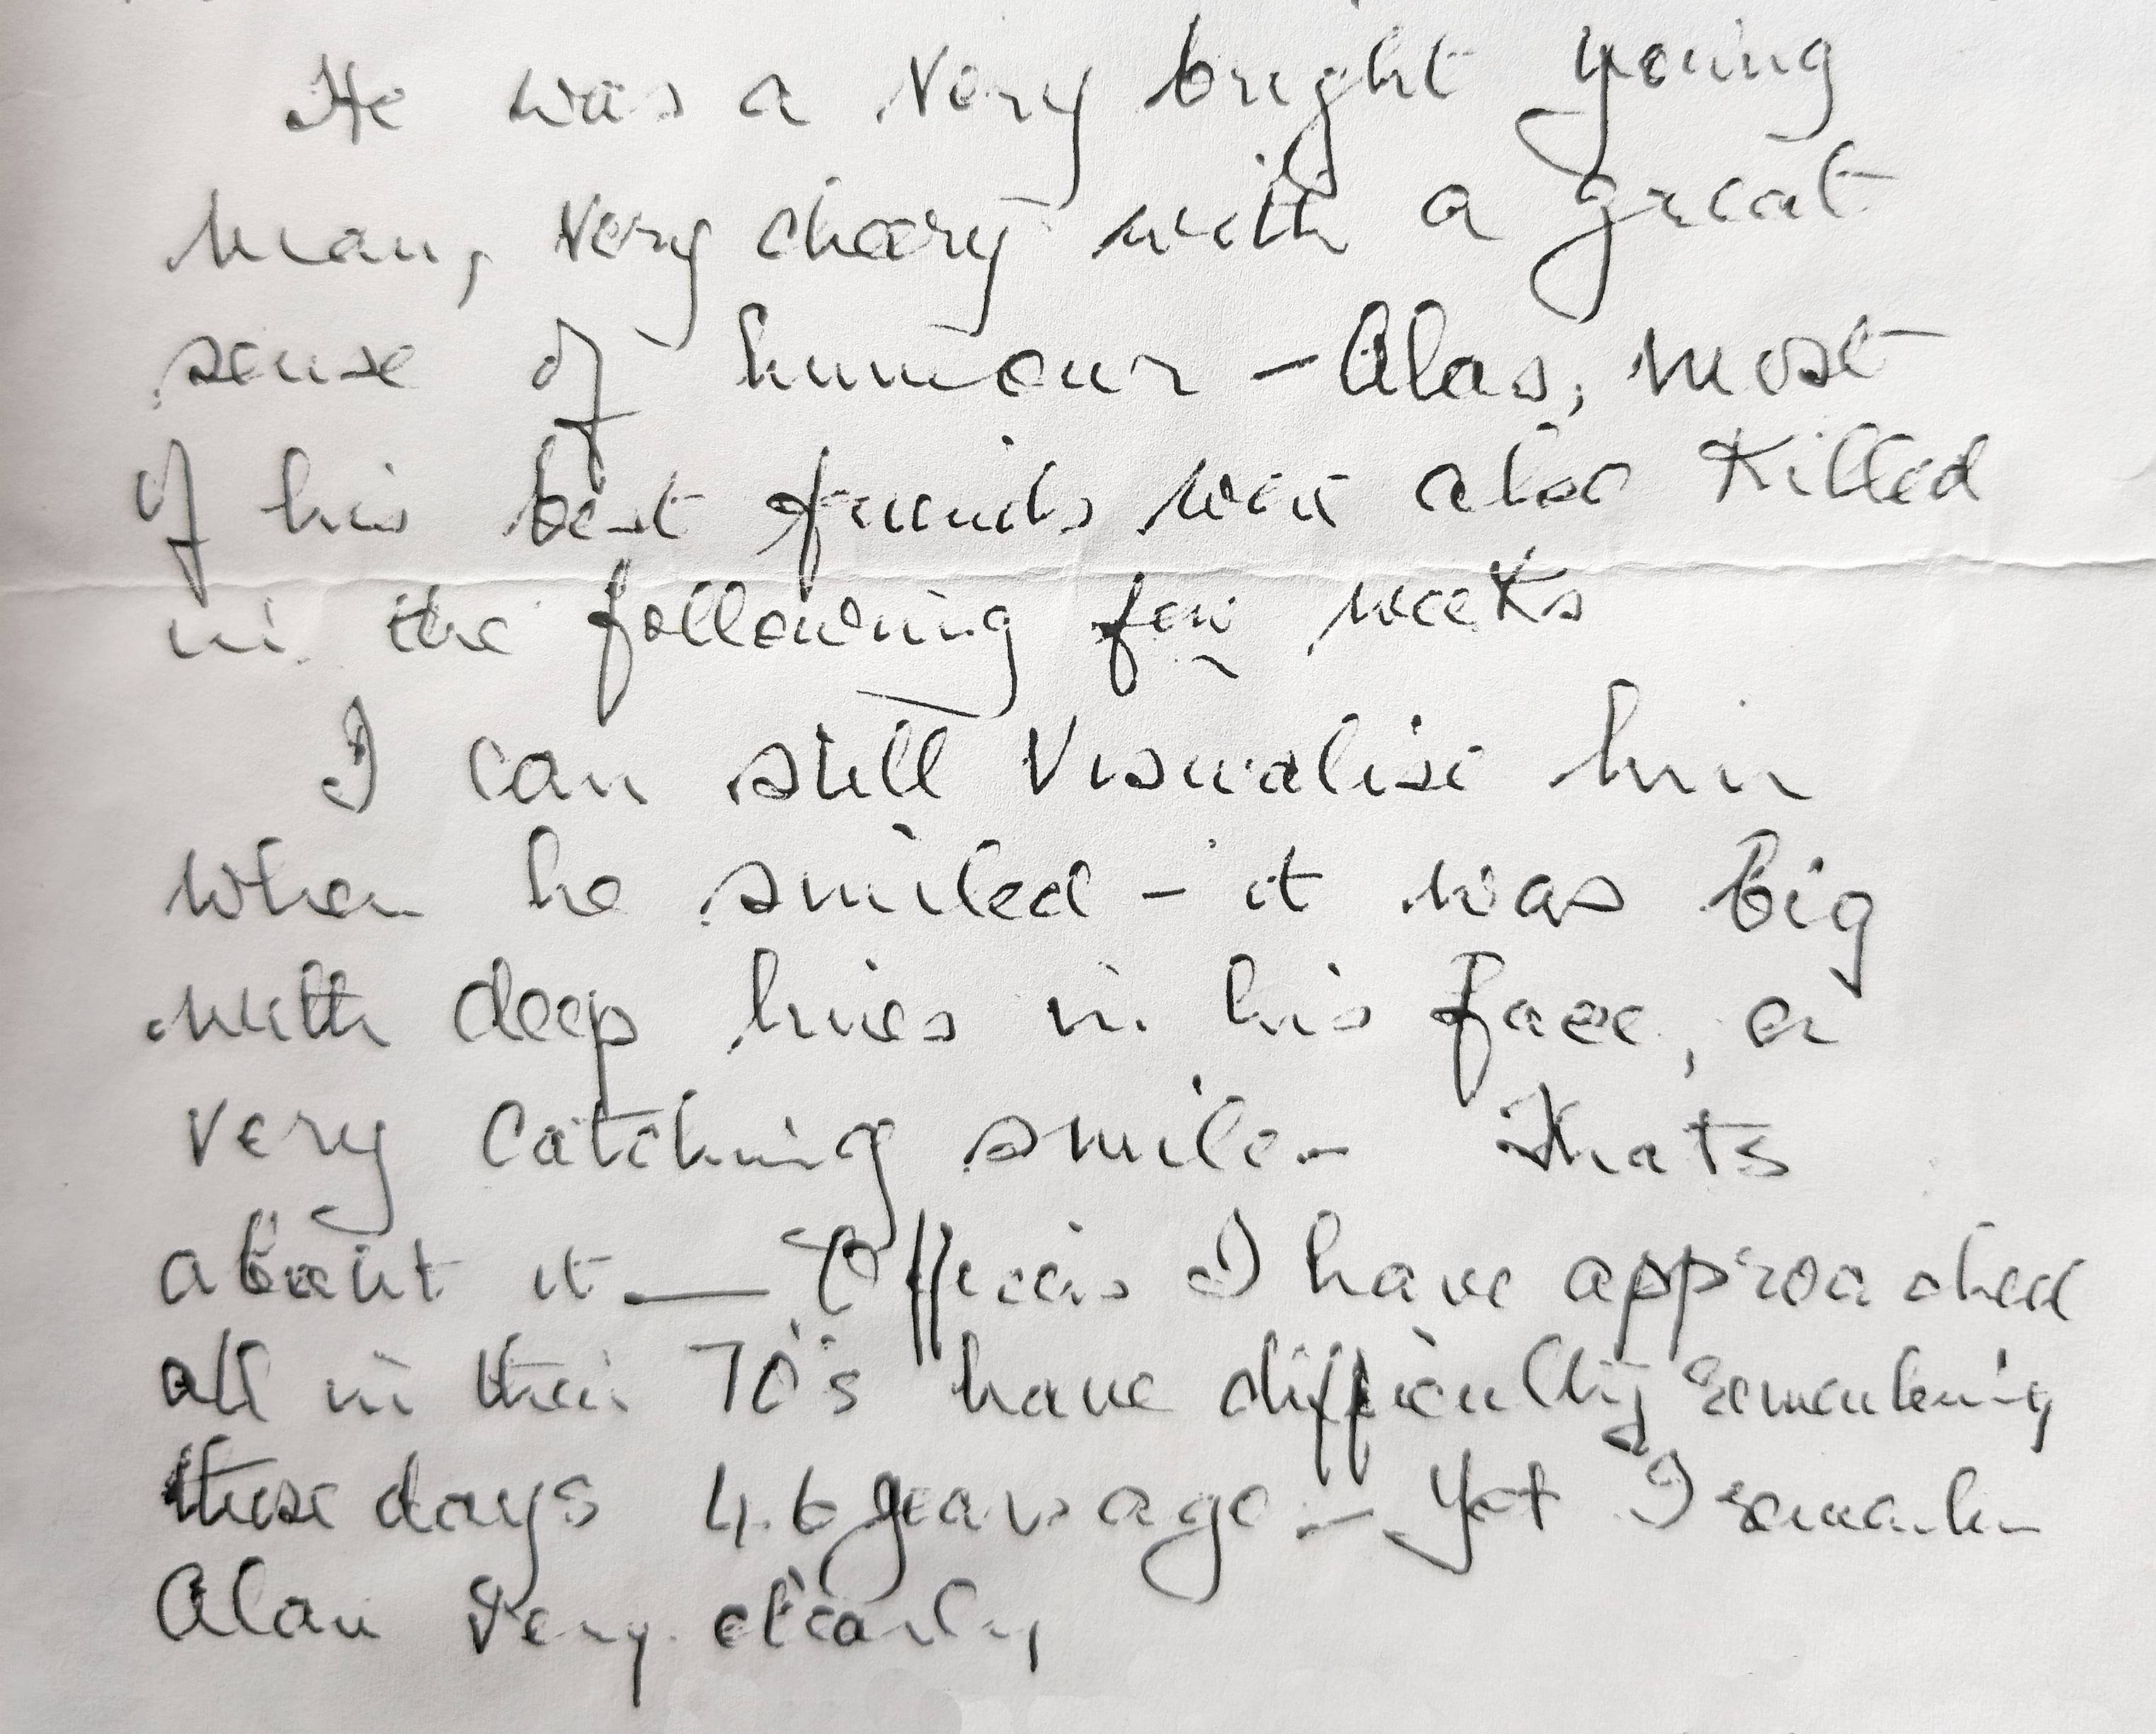 He was a very bright young
man, very cheery with a great
sense of humour – Alas, most
of his best friends were also killed
in the following few weeks
I can still visualise him
when he smiled – it was big
with deep lines in his face, a
very catching smile – Thats
about it — Officers I have approached
all in their 70's have difficulty remembering
these days 46 years ago – yet I remember
Alan very clearly